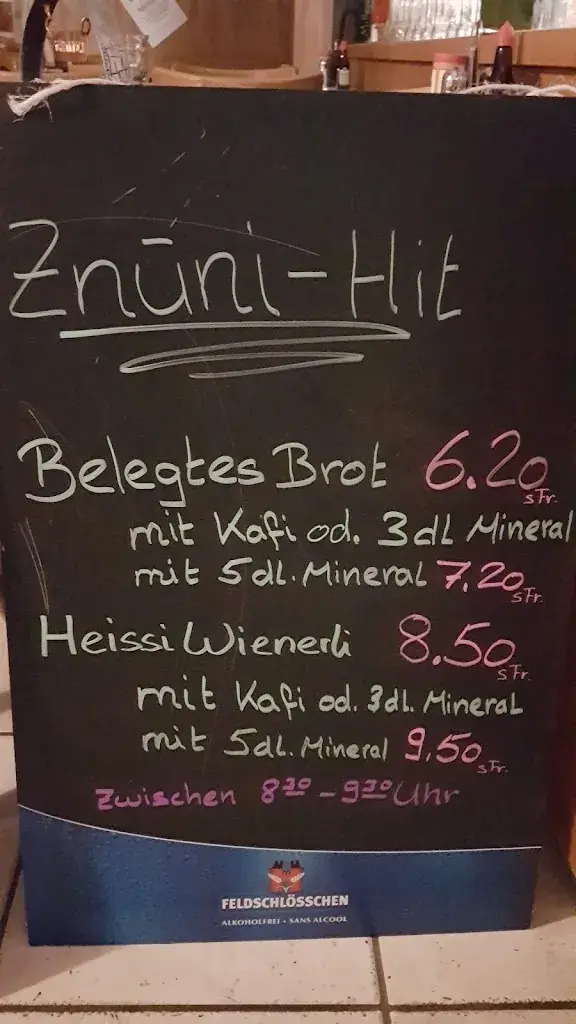 Znüni-Hit
Belegtes Brot 6.20 sFr.
mit Kafi od. 3dl Mineral
mit 5dl. Mineral 7.20 sFr.
Heissi Wienerli 8.50 sFr.
mit Kafi od. 3dl. Mineral
mit 5dl. Mineral 9.50 sFr.
Zwischen 8³⁰ - 9³⁰ Uhr
FELDSCHLÖSSCHEN
ALKOHOLFREI • SANS ALCOOL